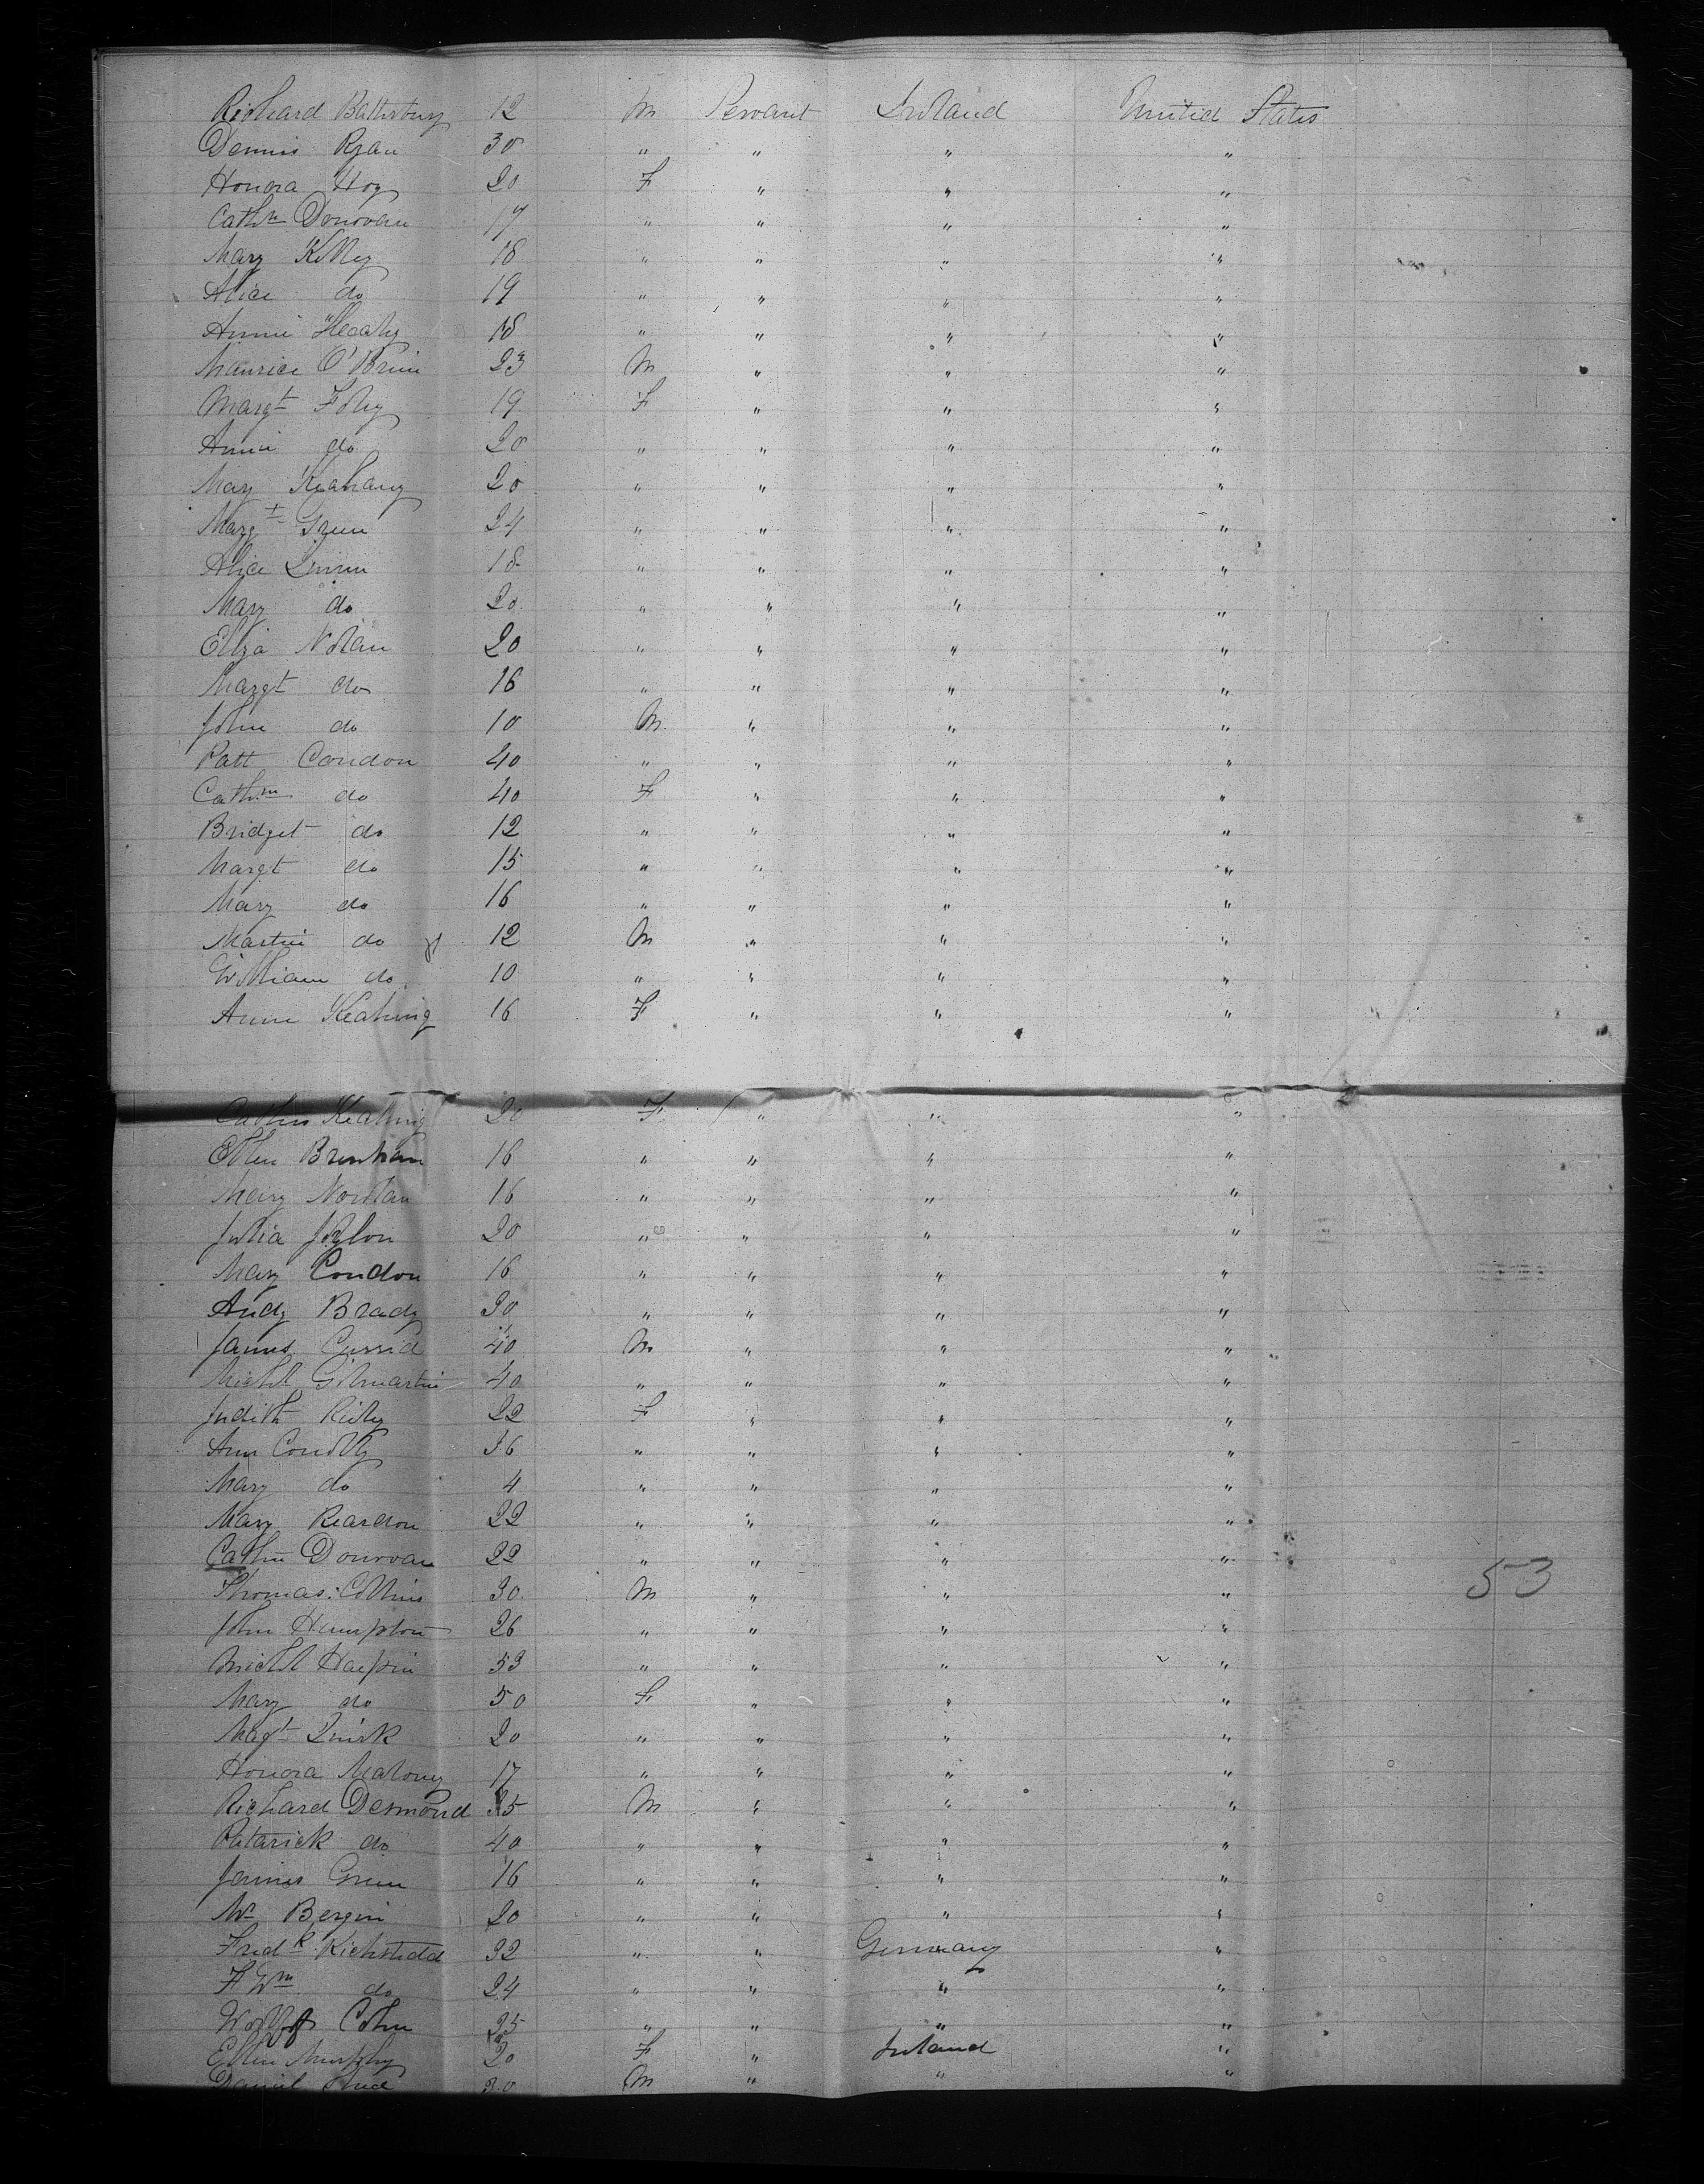 Richard Battersbury 12 M Servant Ireland United States
Dennis Ryan 30 " " " "
Honora Hoy 20 F " " "
Cathn Donovan 17 " " " "
Mary Kelley 18 " " " "
Alice do 19 " " " "
Annie Healy 18 " " " "
Maurice O'Brien 23 M " " "
Margt Foley 19 F " " "
Annie do 20 " " " "
Mary 20 " " " "
Margt Green 24 " " " "
Alice Quinn 18 " " " "
Mary do 20 " " " "
Eliza Nolan 20 " " " "
Margt do 16 " " " "
John do 10 M " " "
Patt Condon 40 " " " "
Cathn do 40 F " " "
Bridget do 12 " " " "
Margt do 15 " " " "
Mary do 16 " " " "
Martin do 12 M " " "
William do 10 " " " "
Anne Keating 16 F " " "
Cathn Keating 20 F " " "
Ellen 16 " " " "
Mary Nowlan 16 " " " "
Julia 20 " " " "
Mary Condon 16 " " " "
Andy Brady 30 " " " "
James Cussid 40 M " " "
Michl Gilmartin 40 " " " "
Judith 22 F " " "
Ann Conolly 36 " " " "
Mary do 4 " " " "
Mary Reardon 22 " " " "
Cathn Donovan 22 " " " "
Thomas Collins 30 M " " " 53
John Humpton 26 " " " "
Michl Halpin 53 " " " "
Mary do 50 F " " "
Magt Quirk 20 " " " "
Honora Malony 17 " " " "
Richard Desmond 35 M " " "
Patarick do 40 " " " "
James Green 16 " " " "
Wm Bergin 20 " " " "
Fredk 32 " " Germany "
F Wm do 24 " " " "
Wolff Cohn 25 " " " "
Ellen Murphy 20 F " Ireland "
Daniel 30 M " " "